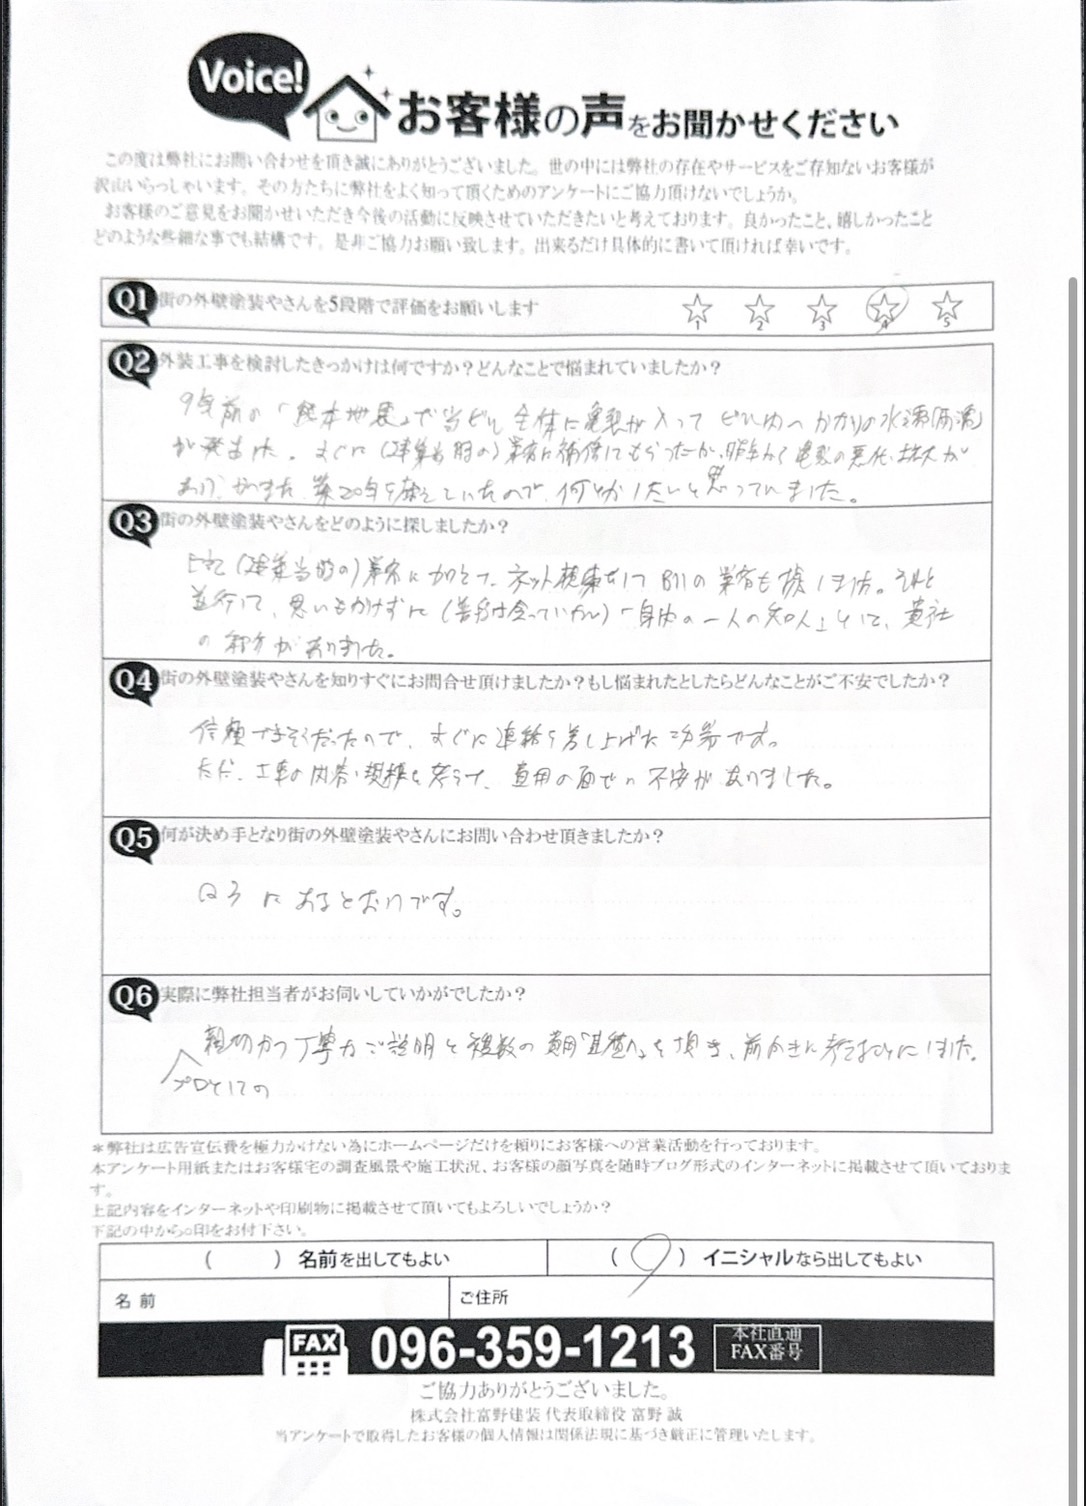 Voice!
お客様の声をお聞かせください
この度は弊社にお問い合わせを頂き誠にありがとうございました。世の中には弊社の存在やサービスをご存知ないお客様が
沢山いらっしゃいます。その方たちに弊社をよく知って頂くためのアンケートにご協力頂けないでしょうか。
お客様のご意見をお聞かせいただき今後の活動に反映させていただきたいと考えております。良かったこと、嬉しかったこと
どのような些細な事でも結構です。是非ご協力お願い致します。出来るだけ具体的に書いて頂ければ幸いです。
Q1 街の外壁塗装やさんを5段階で評価をお願いします
1 2 3 4 5
Q2 外装工事を検討したきっかけは何ですか？どんなことで悩まれていましたか？
9年前の「熊本地震」で当ビル全体に亀裂が入って ビル内へかなりの水漏(雨漏)
が発生した。すぐに(建築当時の)業者に補修してもらったが、昨年から亀裂の悪化、拡大が
あり、 築20年を 超えていたので、何とかしたいと思っていました。
Q3 街の外壁塗装やさんをどのように探しましたか？
(建築当時の)業者に かえて、ネット検索 別の業者も探しました。それと
並行して、思いもかけずに( 会っていない)「自由の一人の知人」 、貴社
の紹介がありました。
Q4 街の外壁塗装やさんを知りすぐにお問合せ頂けましたか？もし悩まれたとしたらどんなことがご不安でしたか？
信頼できそうだったので、すぐに連絡を差し上げた 次第です。
ただ、工事の内容・規模を考えて、費用の面での不安がありました。
Q5 何が決め手となり街の外壁塗装やさんにお問い合わせ頂きましたか？
Q3にあるとおりです。
Q6 実際に弊社担当者がお伺いしていかがでしたか？
親切かつ丁寧なご説明と複数の 費用 を頂き、前向きに考えることにしました。
プロとしての
＊弊社は広告宣伝費を極力かけない為にホームページだけを頼りにお客様への営業活動を行っております。
本アンケート用紙またはお客様宅の調査風景や施工状況、お客様の顔写真を随時ブログ形式のインターネットに掲載させて頂いておりま
す。
上記内容をインターネットや印刷物に掲載させて頂いてもよろしいでしょうか？
下記の中から○印をお付下さい。
（　　）名前を出してもよい （○）イニシャルなら出してもよい
名前 ご住所
FAX 096-359-1213 本社直通
FAX番号
ご協力ありがとうございました。
株式会社富野建装 代表取締役 富野 誠
当アンケートで取得したお客様の個人情報は関係法規に基づき厳正に管理いたします。